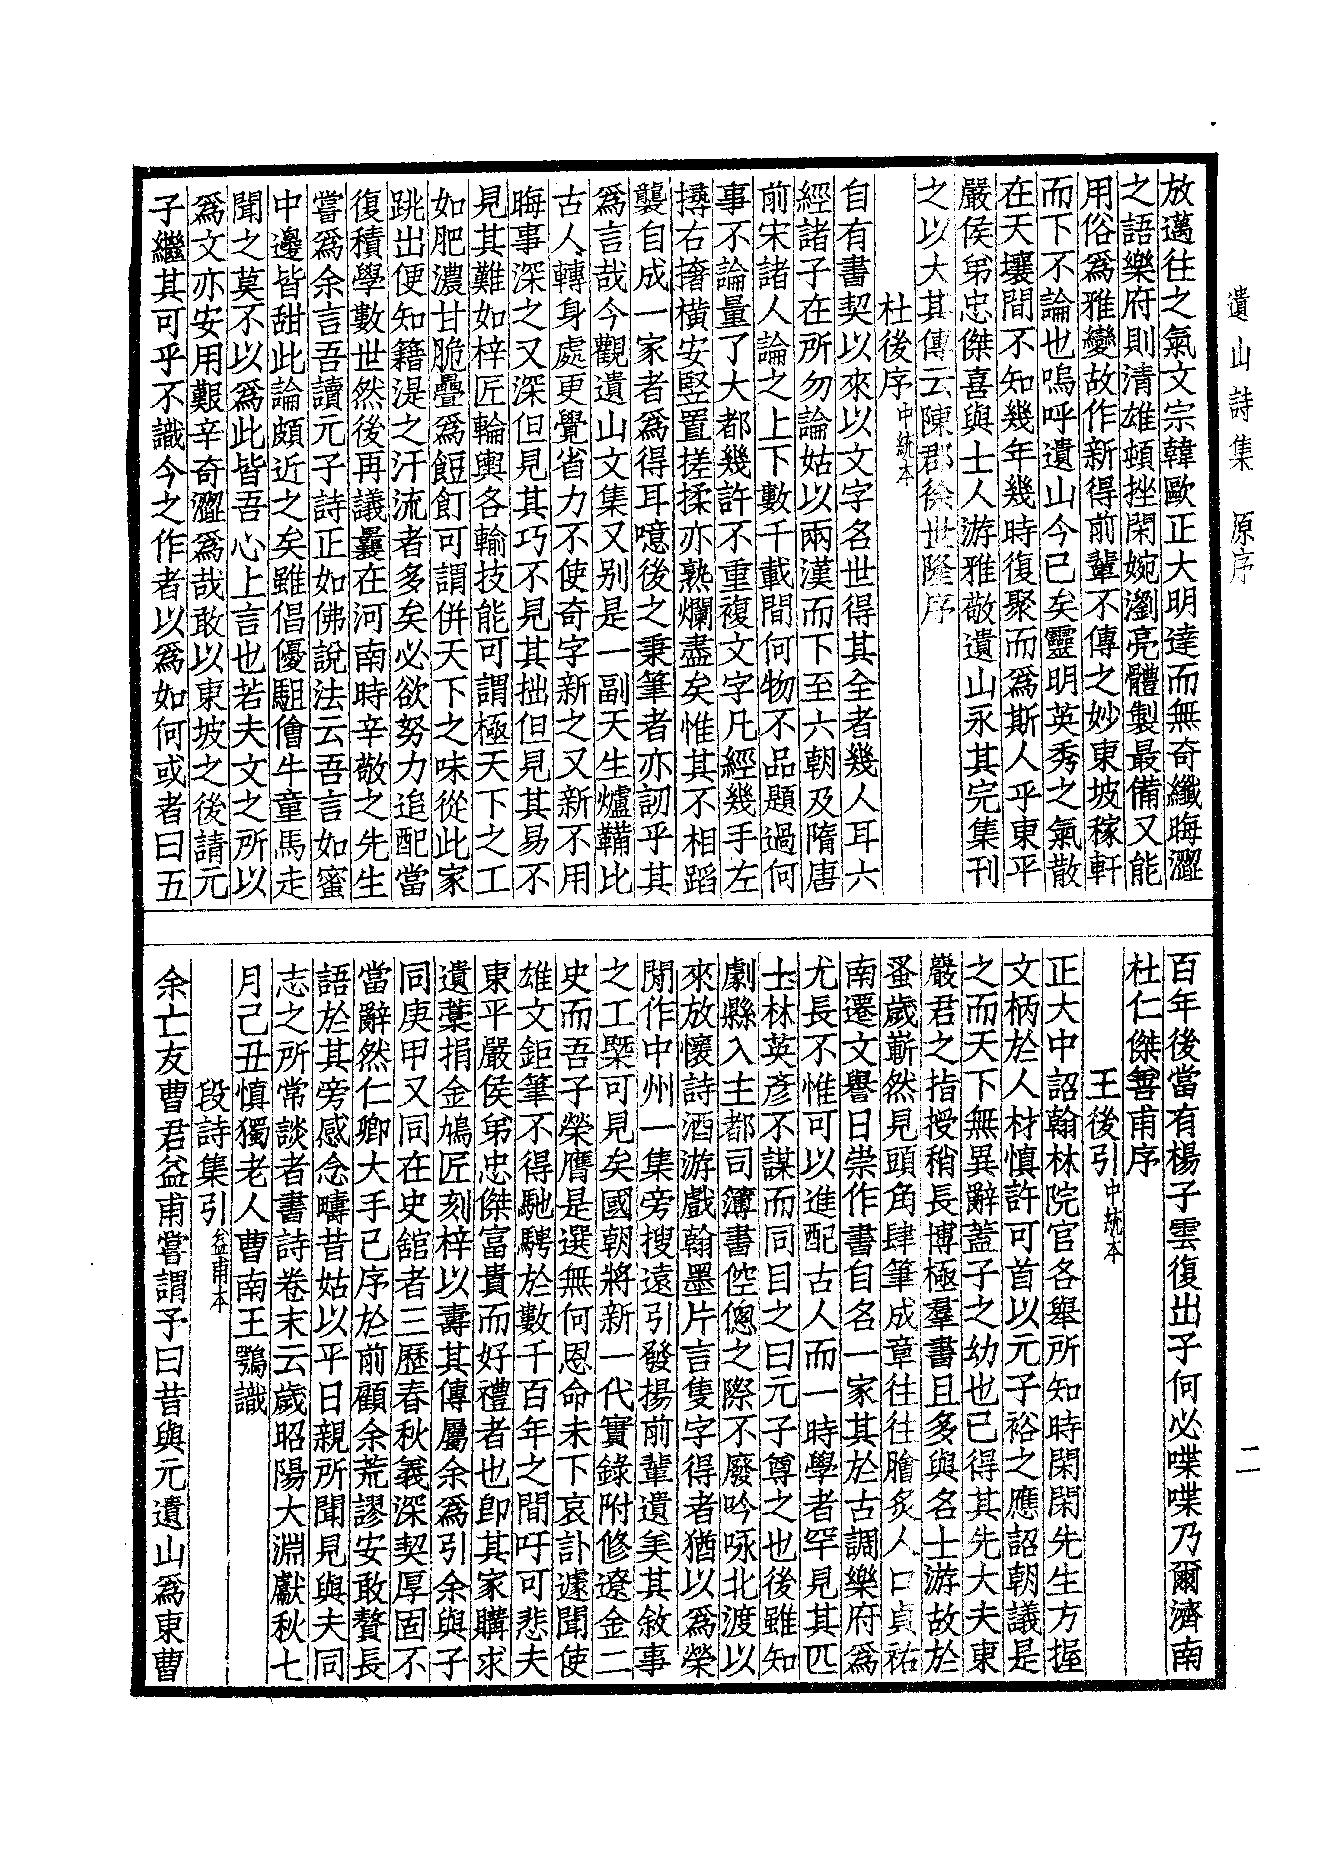 遺山詩集　原序
二
放邁往之氣文宗韓歐正大明達而無奇纖晦澀
之語樂府則清雄頓挫閑婉瀏亮體製最備又能
用俗爲雅變故作新得前輩不傳之妙東坡稼軒
而下不論也嗚呼遺山今已矣靈明英秀之氣散
在天壤間不知幾年幾時復聚而爲斯人乎東平
嚴侯弟忠傑喜與士人游雅敬遺山求其完集刊
之以大其傳云陳郡徐世隆序
杜後序中統本
自有書契以來以文字名世得其全者幾人耳六
經諸子在所勿論姑以兩漢而下至六朝及隋唐
前宋諸人論之上下數千載間何物不品題過何
事不論量了大都幾許不重複文字凡經幾手左
撏右撦橫安竪置搓揉亦熟爛盡矣惟其不相蹈
襲自成一家者爲得耳噫後之秉筆者亦訒乎其
爲言哉今觀遺山文集又别是一副天生爐鞴比
古人轉身處更覺省力不使奇字新之又新不用
晦事深之又深但見其巧不見其拙但見其易不
見其難如梓匠輪輿各輸技能可謂極天下之工
如肥濃甘脆疊爲餖飣可謂併天下之味從此家
跳出便知籍湜之汗流者多矣必欲努力追配當
復積學數世然後再議曩在河南時辛敬之先生
嘗爲余言吾讀元子詩正如佛說法云吾言如蜜
中邊皆甜此論頗近之矣雖倡優駔儈牛童馬走
聞之莫不以爲此皆吾心上言也若夫文之所以
爲文亦安用艱辛奇澀爲哉敢以東坡之後請元
子繼其可乎不識今之作者以爲如何或者曰五
百年後當有楊子雲復出子何必喋喋乃爾濟南
杜仁傑善甫序
王後引中統本
正大中詔翰林院官各舉所知時閑閑先生方握
文柄於人材慎許可首以元子裕之應詔朝議是
之而天下無異辭蓋子之幼也已得其先大夫東
巖君之指授稍長博極羣書且多與名士游故於
蚤歲嶄然見頭角肆筆成章往往膾炙人口貞祐
南遷文譽日崇作書自名一家其於古調樂府爲
尤長不惟可以進配古人而一時學者罕見其匹
士林英彦不謀而同目之曰元子尊之也後雖知
劇縣入主都司簿書倥傯之際不廢吟咏北渡以
來放懷詩酒游戲翰墨片言隻字得者猶以爲榮
閒作中州一集旁搜遠引發揚前輩遺美其敘事
之工槩可見矣國朝將新一代實錄附修遼金二
史而吾子榮膺是選無何恩命未下哀訃遽聞使
雄文鉅筆不得馳騁於數千百年之間吁可悲夫
東平嚴侯弟忠傑富貴而好禮者也卽其家購求
遺藁捐金鳩匠刻梓以壽其傳屬余爲引余與子
同庚甲又同在史舘者三歷春秋義深契厚固不
當辭然仁卿大手己序於前顧余荒謬安敢贅長
語於其旁感念疇昔姑以平日親所聞見與夫同
志之所常談者書詩卷末云歲昭陽大淵獻秋七
月己丑慎獨老人曹南王鶚識
段詩集引益甫本
余亡友曹君益甫嘗謂予曰昔與元遺山爲東曹